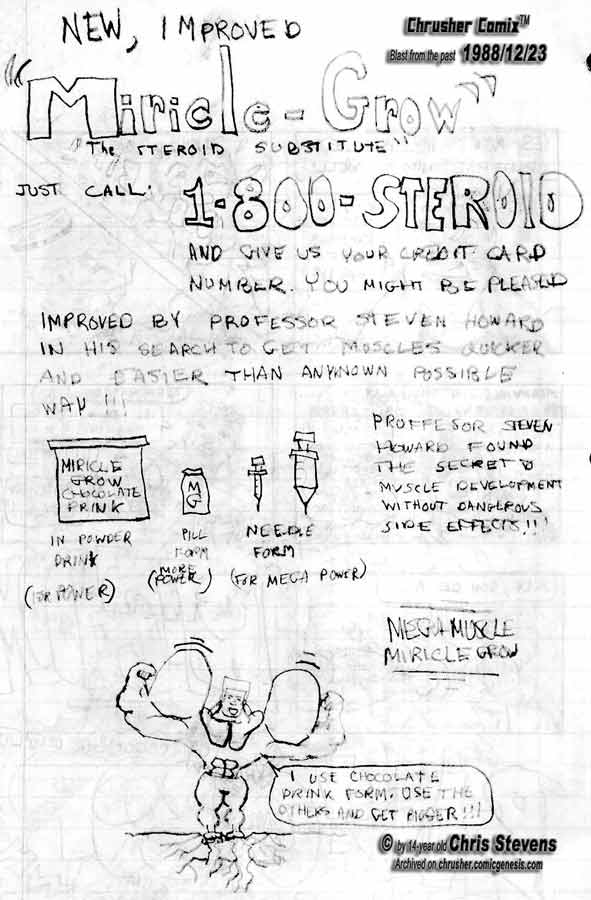 NEW, IMPROVED
Chrusher Comix™
Blast from the past 1988/12/23
"Miricle-Grow"
"The STEROID SUBSTITUTE"
JUST CALL: 1-800-STEROID
AND GIVE US YOUR CREDIT CARD
NUMBER. YOU MIGHT BE PLEASED
IMPROVED BY PROFESSOR STEVEN HOWARD
IN HIS SEARCH TO GET MUSCLES QUICKER
AND EASIER THAN ANYNOWN POSSIBLE
WAY!!!
PROFFESOR STEVEN
HOWARD FOUND
THE SECRET TO
MUSCLE DEVELOPMENT
WITHOUT DANGEROUS
SIDE EFFECTS!!!
MIRICLE
GROW
CHOCOLATE
DRINK
IN POWDER
DRINK
(FOR POWER)
MG
PILL
FORM
(MORE
POWER)
NEEDLE
FORM
(FOR MEGA POWER)
MEGA MUSCLE
MIRICLE GROW
I USE CHOCOLATE
DRINK FORM. USE THE
OTHERS AND GET BIGGER!!!
© by 14-year old Chris Stevens
Archived on chrusher.comicgenesis.com